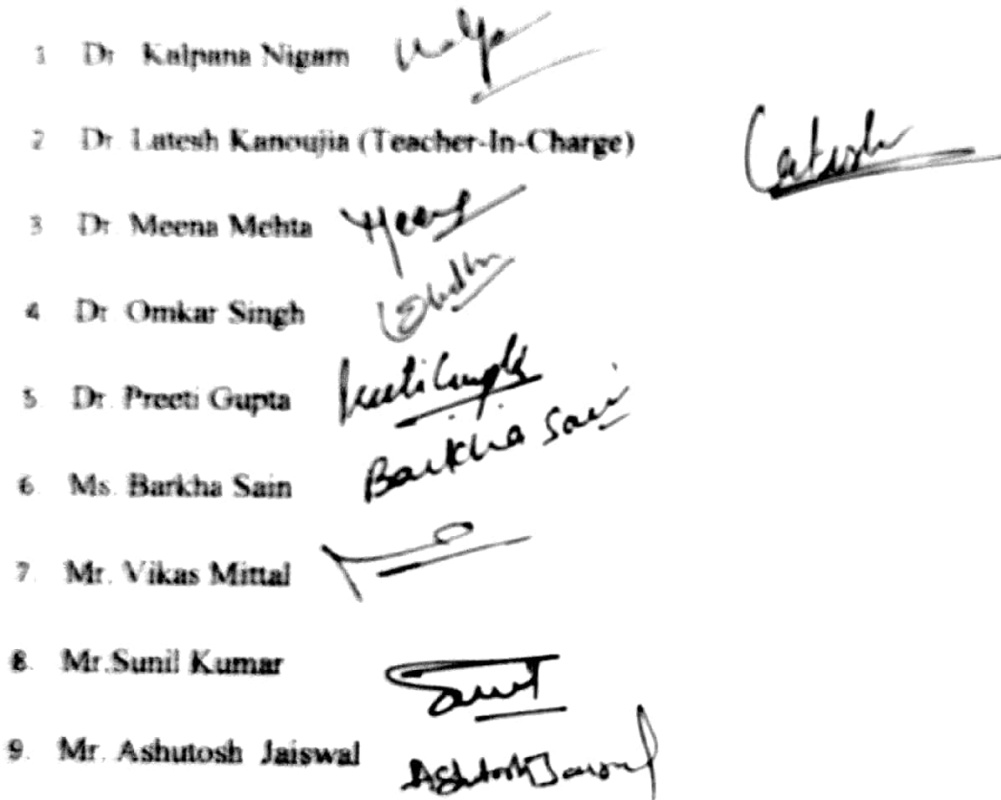 1 Dr Kalpana Nigam
2 Dr. Latesh Kanoujia (Teacher-In-Charge) Latesh
3 Dr. Meena Mehta Meena
4 Dr Omkar Singh
5. Dr. Preeti Gupta Preeti Gupta
6 Ms. Barkha Sain Barkha Sain
7. Mr. Vikas Mittal
8. Mr.Sunil Kumar Sunil
9. Mr. Ashutosh Jaiswal